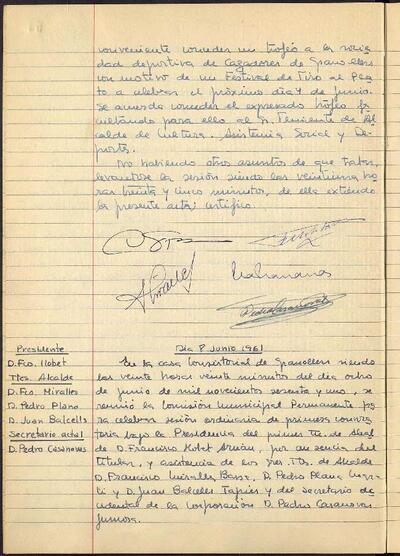 conveniente conceder un trofeo a la socie
dad deportiva de Cazadores de Granollers
con motivo de un Festival de Tiro al Pla
to a celebrar el próximo dia 4 de Junio.
Se acuerda conceder el expresado trofeo fa
cultando para ello al Sr. Teniente de Al
calde de Cultura, Asistencia Social y De
portes.
No habiendo otros asuntos de que tratar,
levantose la sesión siendo las veintiuna ho
ras treinta y cinco minutos, de ella extiendo
la presente acta; certifico.
Presidente
D. Fco. Llobet
Ttes. Alcalde
D. Fco. Miralles
D. Pedro Plana
D. Juan Balcells
Secretario actal
D. Pedro Casanovas
Dia 8 Junio 1961
En la casa Consistorial de Granollers siendo
las veinte horas veinte minutos del dia ocho
de junio de mil novecientos sesenta y uno, se
reunió la Comisión Municipal Permanente pa
ra celebrar sesión ordinaria de primera convoca
toria bajo la Presidencia del primer Tte. de Alcal
de D. Francisco Llobet Arnán, por ausencia del
titular, y asistencia de los Sres. Tts. de Alcalde
D. Francisco Miralles Bassa, D. Pedro Plana
y D. Juan Balcells Tapies y del secretario ac
cidental de la Corporación D. Pedro Casanovas
Juniosa.